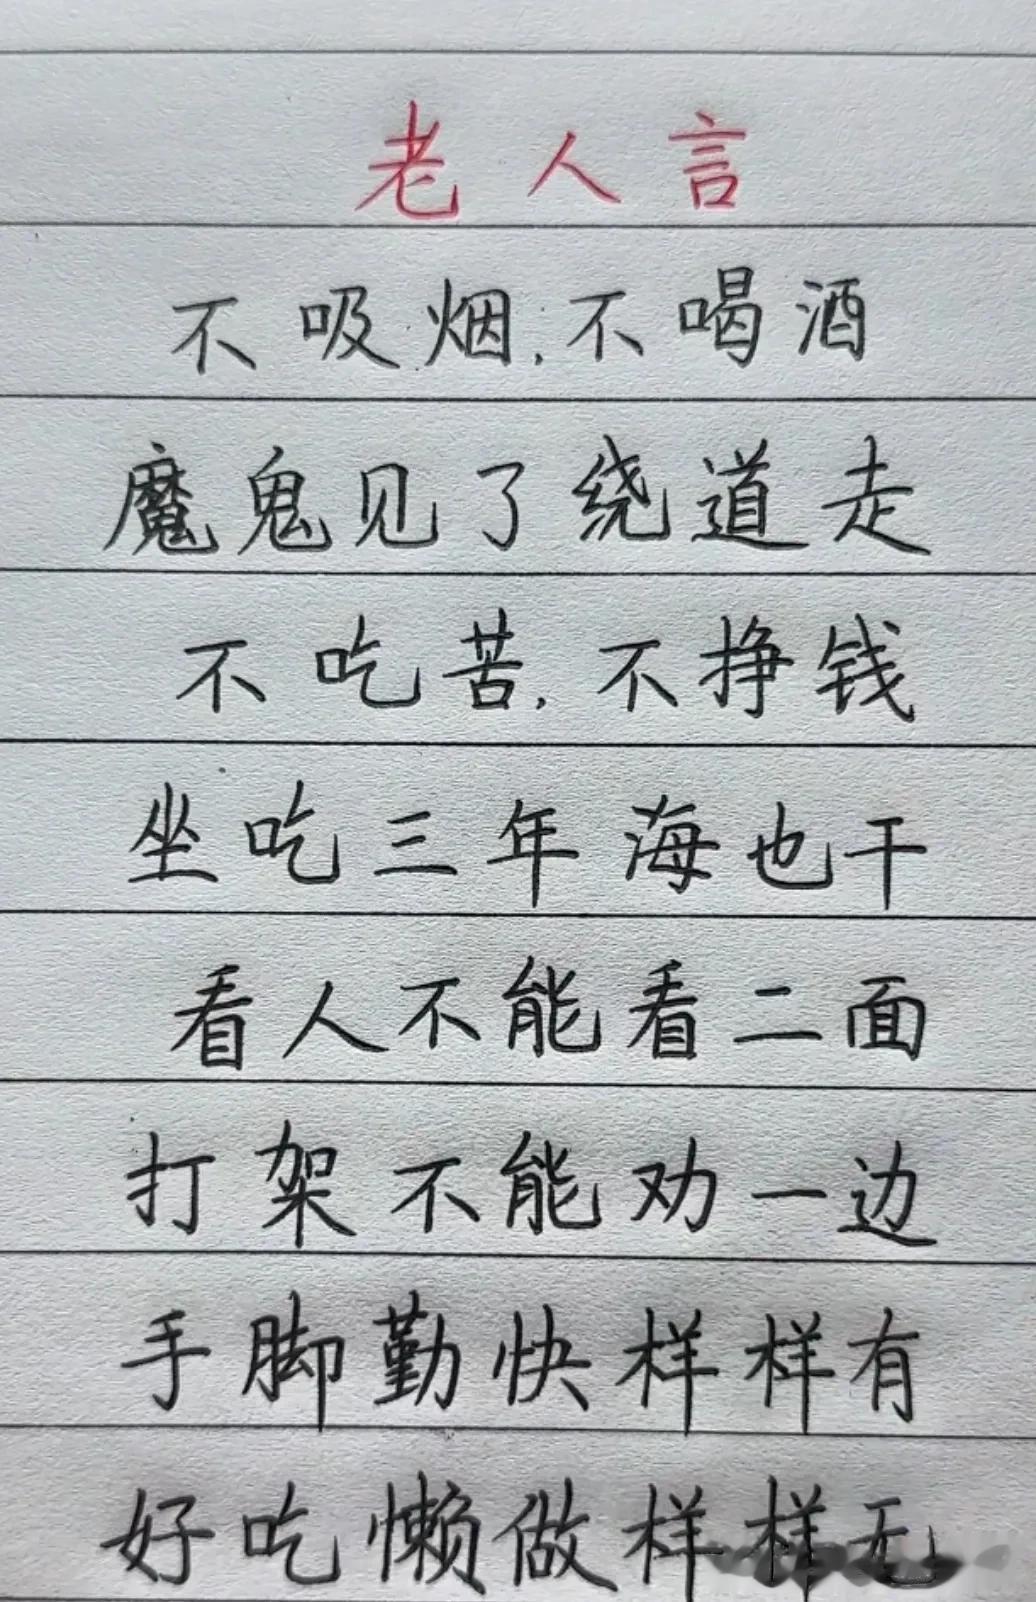 老人言
不吸烟,不喝酒
魔鬼见了绕道走
不吃苦,不挣钱
坐吃三年海也干
看人不能看二面
打架不能劝一边
手脚勤快样样有
好吃懒做样样无